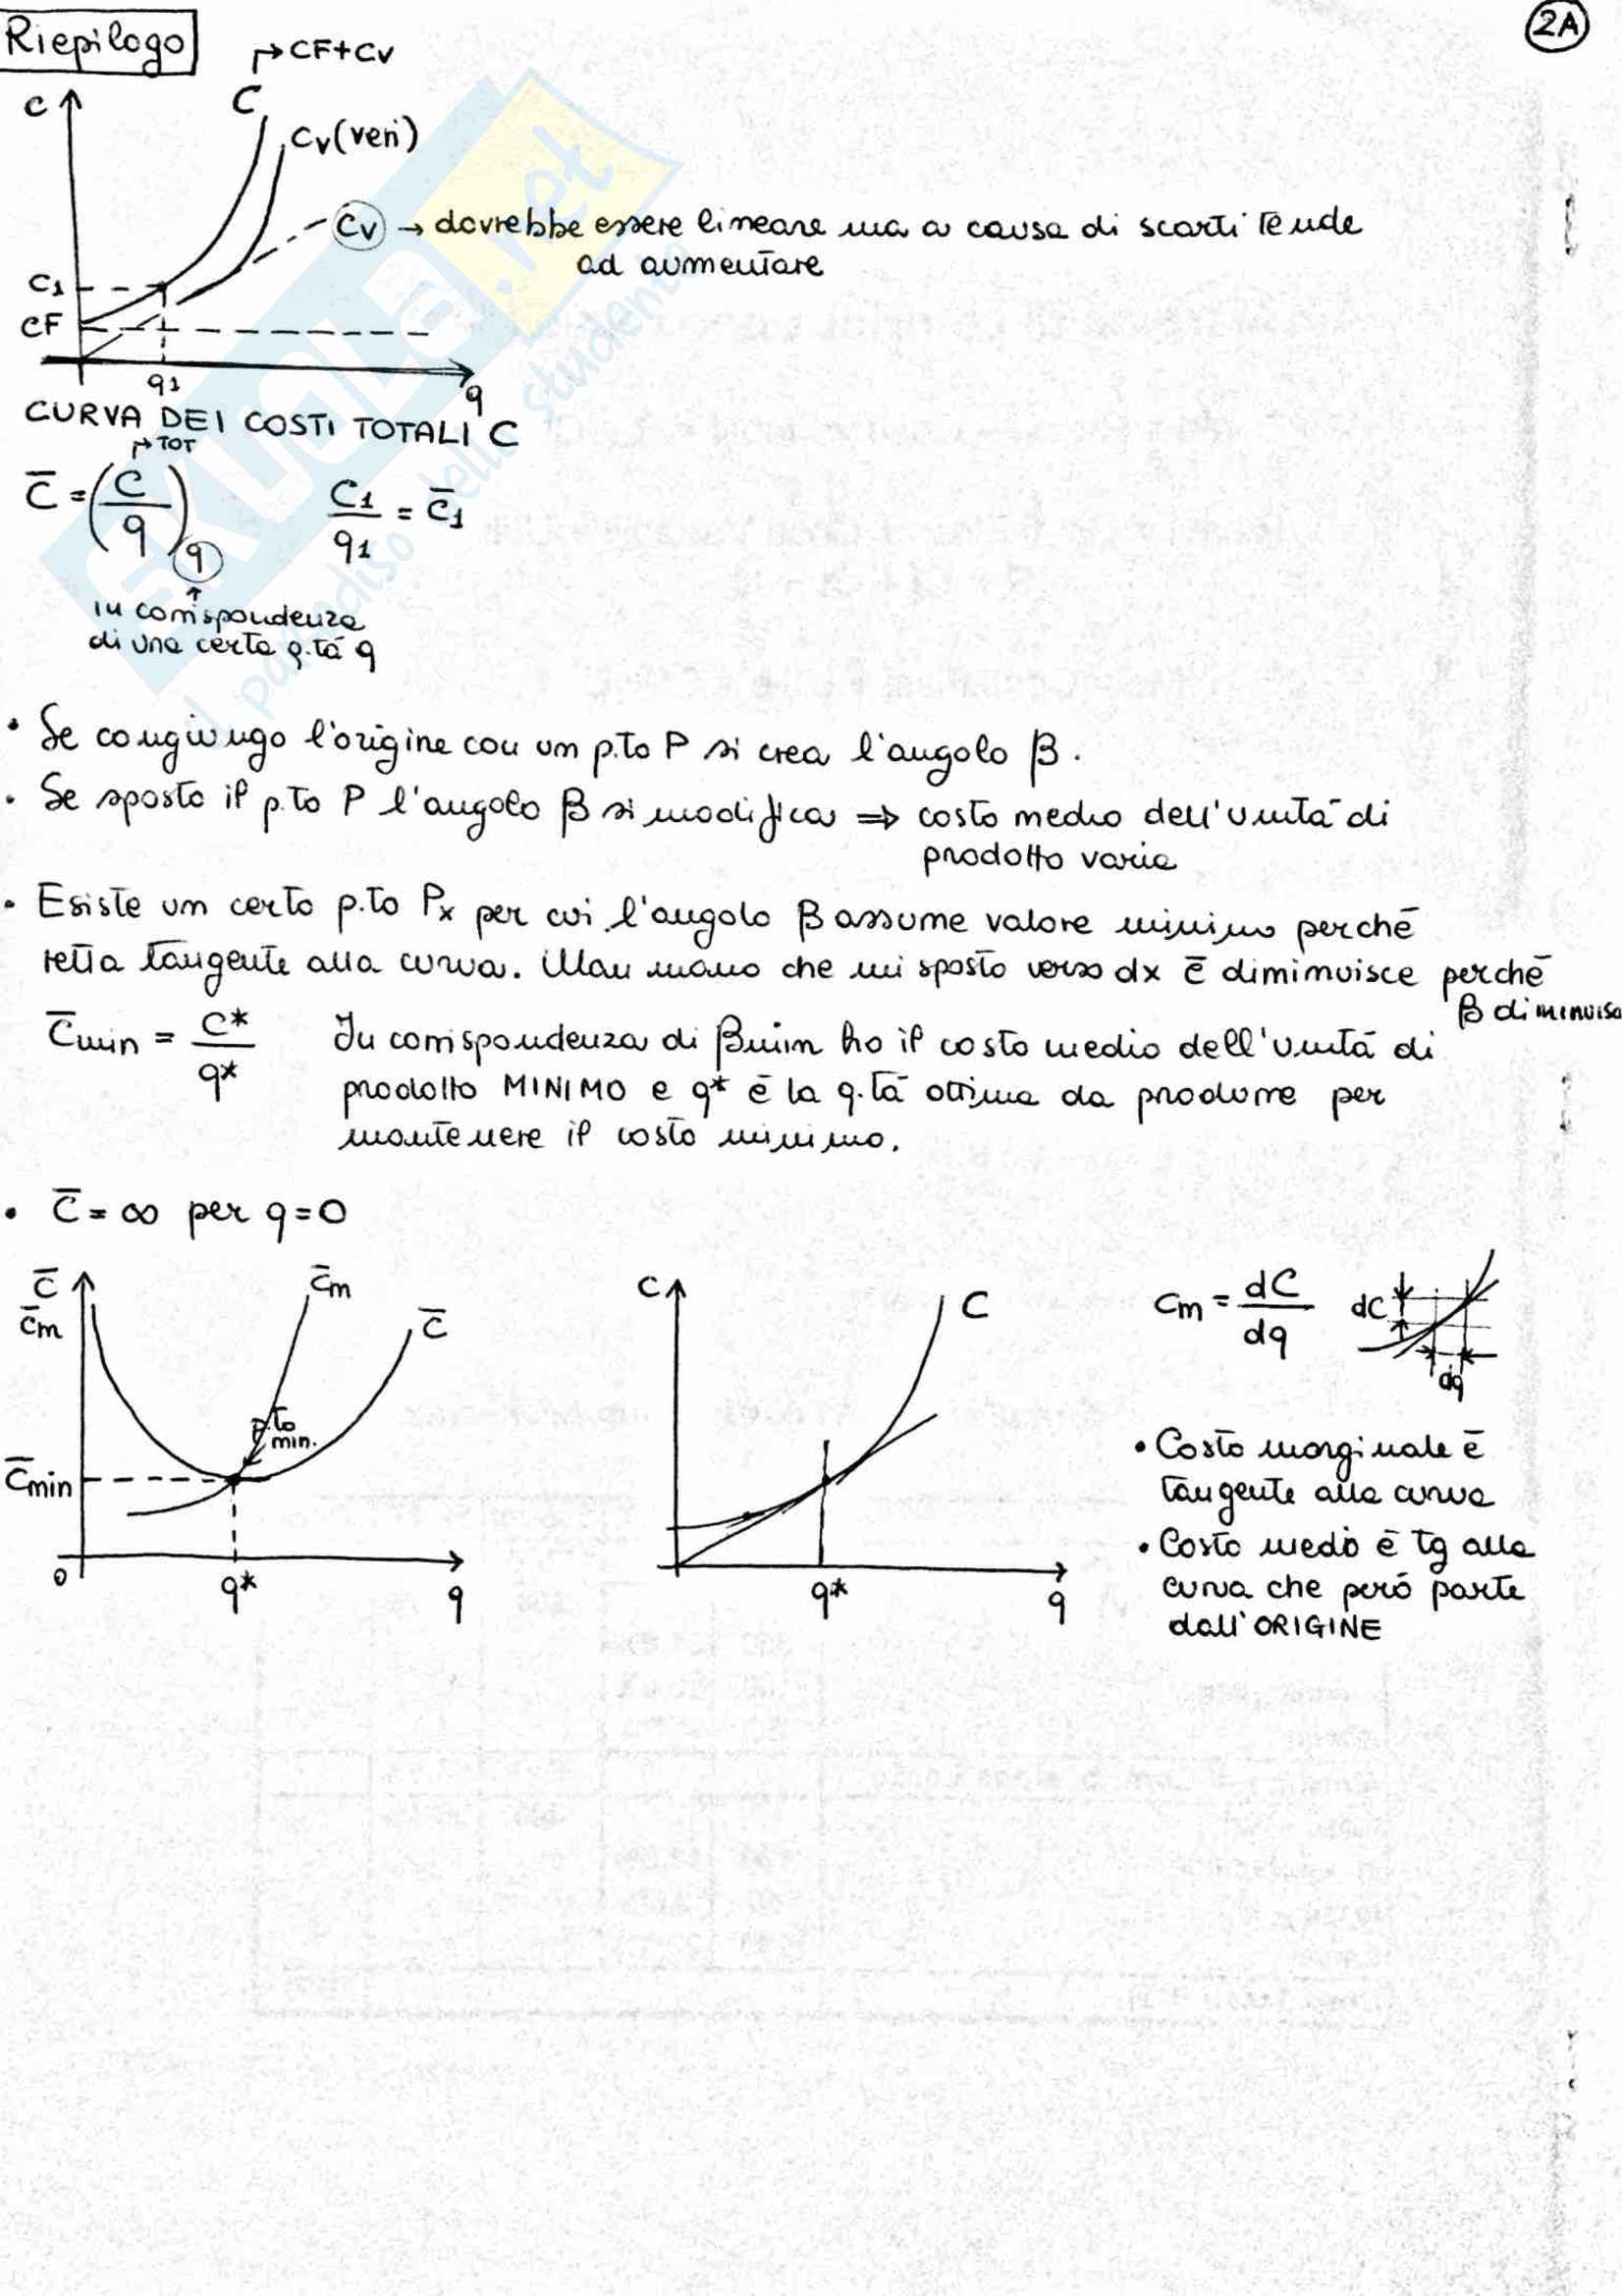 Riepilogo
2A
→ CF+Cv
C
C
Cv (veri)
Cv → dovrebbe essere lineare ma a causa di scarti tende
ad aumentare
C1
CF
q1
q
CURVA DEI COSTI TOTALI C
→ TOT
C̅ = (C/q)q    C1/q1 = C̅1
↑
in corrispondenza
di una certa q.tà q
• Se congiungo l'origine con un p.to P si crea l'angolo β.
• Se sposto il p.to P l'angolo β si modifica ⇒ costo medio dell'unità di
prodotto varia
• Esiste un certo p.to Px per cui l'angolo β assume valore minimo perché
retta tangente alla curva. Man mano che mi sposto verso dx c̅ diminuisce perché
β diminuisc
C̅min = C*/q*    In corrispondenza di βmin ho il costo medio dell'unità di
prodotto MINIMO e q* è la q.tà ottima da produrre per
mantenere il costo minimo.
• C̅ = ∞ per q=0
C̅
C̅m
C̅m
C̅
p.to
min.
C̅min
0
q*
q
C
C
q*
q
Cm = dC/dq
dC
dq
• Costo marginale è
tangente alla curva
• Costo medio è tg alla
curva che però parte
dall'ORIGINE
SKUOLA.net
il paradiso dello studente